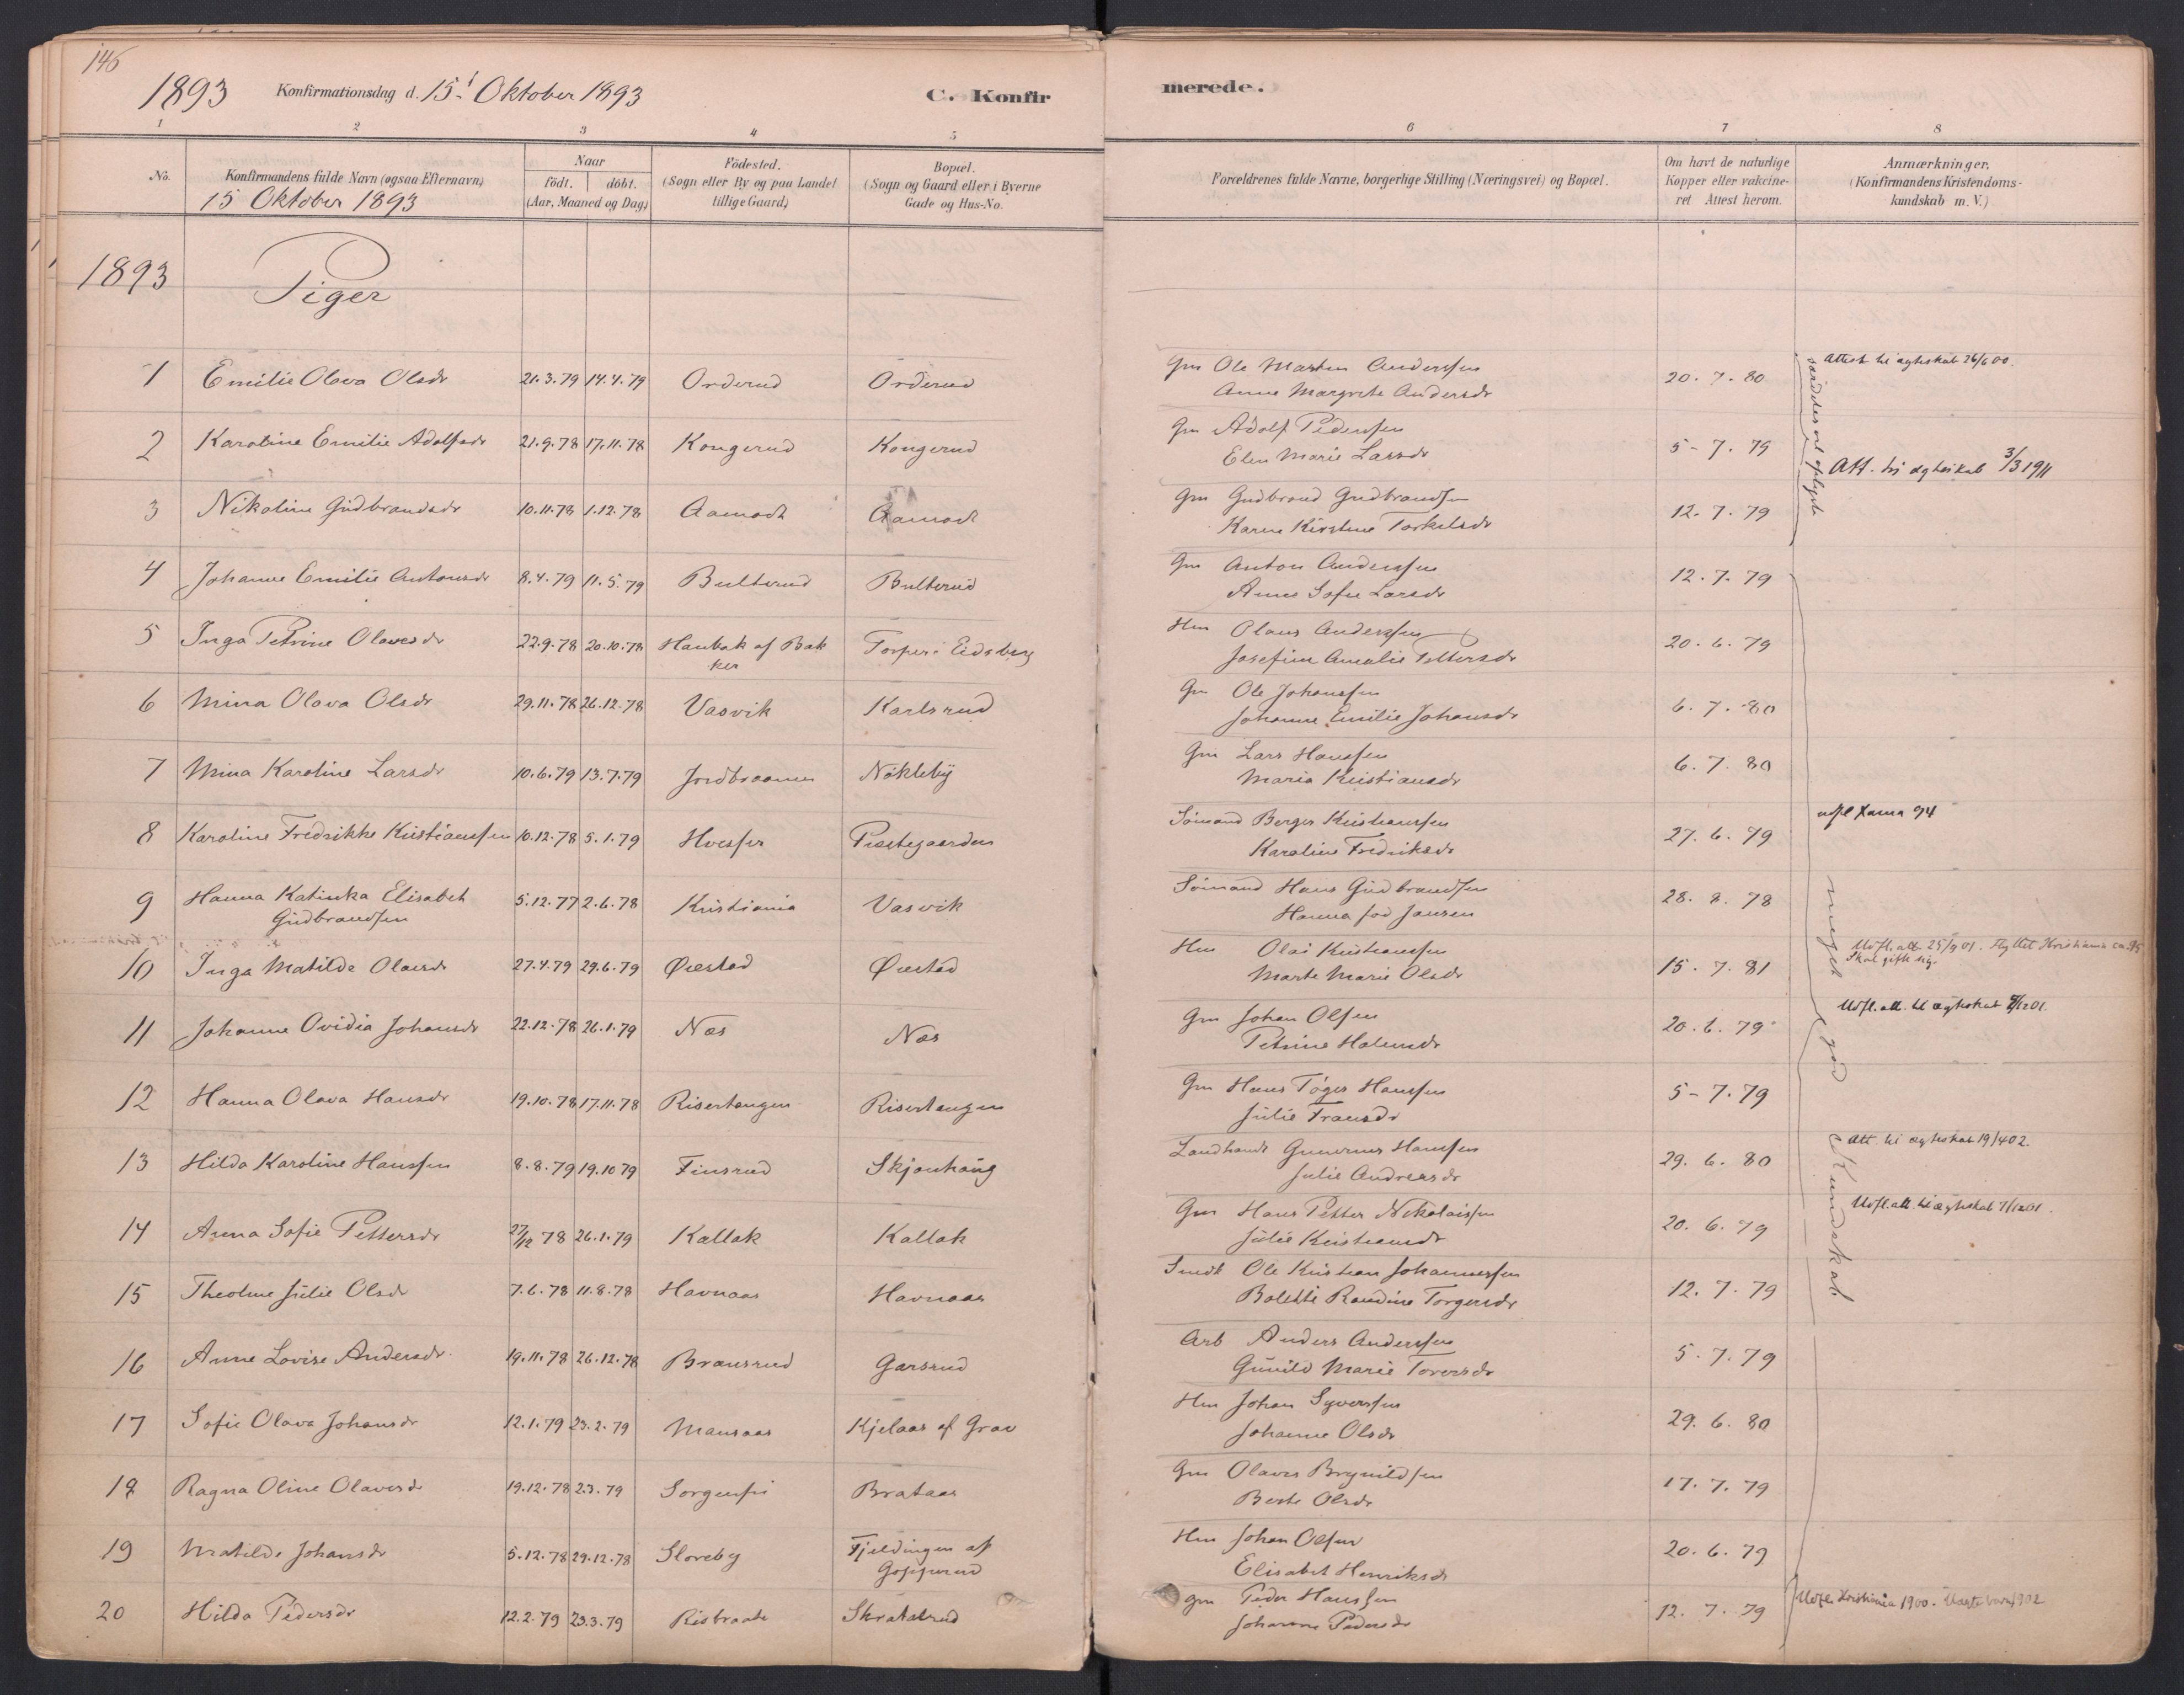 146
1893 Konfirmationsdag d. 15. Oktober 1893 C. Konfirmerede.
1 2 3 4 5 6 7 8
No.
Konfirmandens fulde Navn (ogsaa Efternavn)
15 Oktober 1893
Naar
födt. döbt.
(Aar, Maaned og Dag)
Födested.
(Sogn eller By og paa Landet
tillige Gaard)
Bopæl.
(Sogn og Gaard eller i Byerne
Gade og Hus-No.
Forældrenes fulde Navne, borgerlige Stilling (Næringsvei) og Bopæl.
Om havt de naturlige
Kopper eller vakcine-
ret Attest herom.
Anmærkninger.
(Konfirmandens Kristendoms-
kundskab m. V.)
1893 Piger
1 Emilie Olava Olsdr 21.3.79 14.4.79 Orderud Orderud Gm Ole Marten Anderssen 20.7.80 Attest til ægteskab 26/6 00.
Anne Margrete Andersdr
2 Karoline Emilie Adolfsdr 21.9.78 17.11.78 Kongerud Kongerud Gm Adolf Pederssen 5-7.79 Att. til ægteskab 3/3 1911
Elen Marie Larsdr
3 Nikoline Gudbrandsdr 10.11.78 1.12.78 Aamodt Aamodt Gm Gudbrand Gudbrandsen 12.7.79
Karen Kirstine Torkelsdr
4 Johanne Emilie Antonsdr 8.4.79 11.5.79 Bulterud Bulterud Gm Anton Anderssen 12.7.79
Anne Sofie Larsdr
5 Inga Petrine Olavesdr 22.9.78 20.10.78 Haubak af Bak
ker
Torper i Eidsberg Hm Olaus Anderssen 20.6.79
Josefine Amalie Pettersdr
6 Mina Olava Olsdr 29.11.78 26.12.78 Vasvik Karlsrud Gm Ole Johanssen 6.7.80
Johanne Emilie Johansdr
7 Mina Karoline Larsdr 10.6.79 13.7.79 Jordbraaten Nökleby Gm Lars Hanssen 6.7.80
Maria Kristiansdr
8 Karoline Fredrikke Kristianssen 10.12.78 5.1.79 Præstegaarden Sömand Berger Kristianssen 27.6.79 94
Karoline Fredriksdr
9 Hanna Katinka Elisabet
Gudbrandsen
5.12.77 2.6.78 Kristiania Vasvik Sömand Hans Gudbrandsen 28.8.78
Hanna fød Jansen
10 Inga Matilde Olaisdr 27.4.79 29.6.79 Ørestad Ørestad Hm Olai Kristianssen 15.7.81 Udfl. att. 25/9 01. Flyttet Kristiania ca. 95
Skal gifte sig.
Marte Marie Olsdr
11 Johanne Ovidia Johansdr 22.12.78 26.1.79 Næs Næs Gm Johan Olsen 20.6.79 Udfl. att. til ægteskab
Petrine
12 Hanna Olava Hansdr 19.10.78 17.11.78 Risertangen Risertangen Gm Hans Töger Hanssen 5-7.79
Julie Fransdr
13 Hilda Karoline Hanssen 8.8.79 19.10.79 Finsrud Skjønhaug Landhandl Gunerius Hanssen 29.6.80 Att. til ægteskab 19/4 02.
Julie Andreasdr
14 Anna Sofie Pettersdr 27/12 78 26.1.79 Kallak Kallak Gm Hans Petter Nikolaissen 20.6.79 Udfl. att. til ægteskab
Julie Kristiansdr
15 Theoline Julie Olsdr 7.6.78 11.8.78 Havnaas Havnaas Smed Ole Kristian Johannessen 12.7.79
Bolette Randine Torgersdr
16 Anne Lovise Andersdr 19.11.78 26.12.78 Bransrud Garsrud Arb Anders Anderssen 5.7.79
Gunild Marie Toversdr
17 Sofie Olava Johansdr 12.1.79 23.2.79 Mansaas Kjelaas af Grav Hm Johan Syverssen 29.6.80
Johanne Olsdr
18 Ragna Oline Olavesdr 19.12.78 2.3.79 Sorgenfri Brataas Gm Olaves Brynildsen 17.7.79
Berte Olsdr
19 Matilde Johansdr 5.12.78 29.12.78 Sloreby Fjeldingen af
Gopperud
Hm Johan Olsen 20.6.79
Elisabet Henriksdr
20 Hilda Pedersdr 12.2.79 23.3.79 Ristraate Skratalrud Gm Peder Hanssen 12.7.79 Udfl. Kristiania 1900.
Johanne Pedersdr
særdeles vel oplyst
meget god Kundskab.